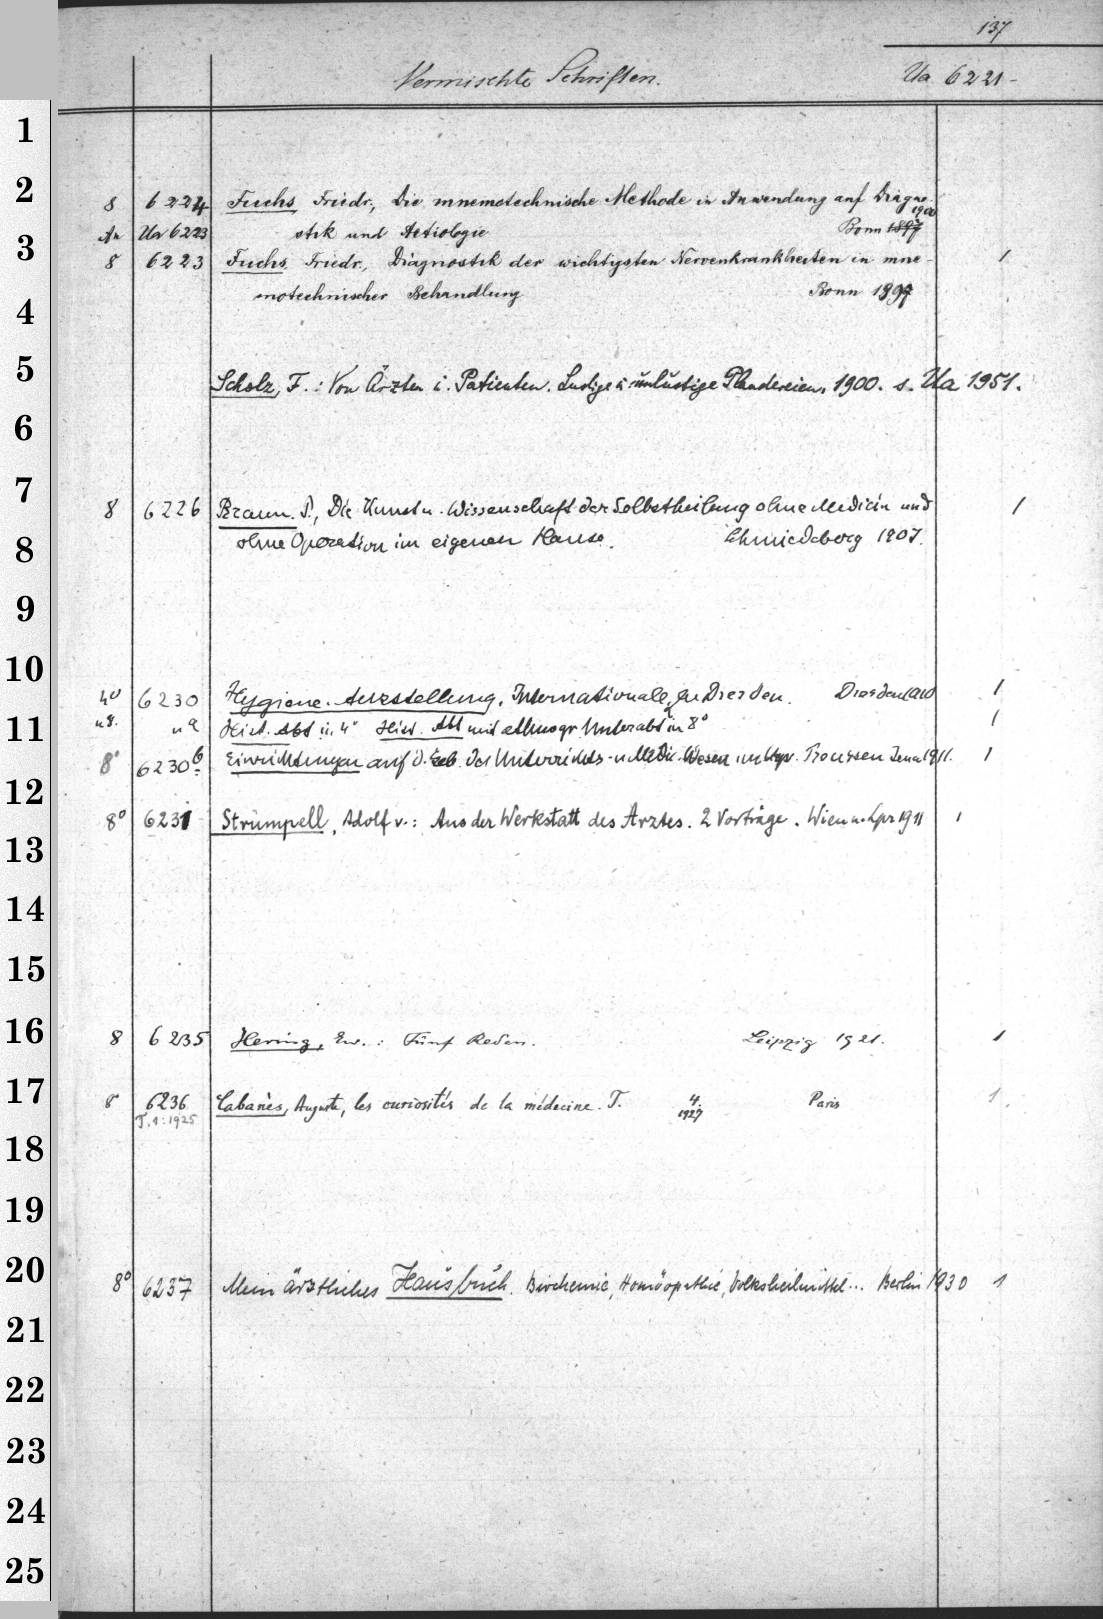 137
Vermischte Schriften. Ua 6221-
1
2
8 6224 Fuchs, Friedr., Die mnemotechnische Methode in Anwendung auf Diagno-
1900
An Ua 6223 stik und Aetiologie Bonn 1897
3
8 6223 Fuchs, Friedr., Diagnostik der wichtigsten Nervenkrankheiten in mne- 1
motechnischer Behandlung Bonn 1897
4
5
Scholz, F.: Von Ärzten u. Patienten. Lustige u. unlustige Plaudereien. 1900. s. Ua 1951.
6
7
8 6226 Braun, P., Die Kunst u. Wissenschaft der Selbstheilung ohne Medicin und 1
8
ohne Operation im eigenen Hause. Schmiedeberg 1907.
9
10
4° 6230 Hygiene-Ausstellung, Internationale, zu Dresden. Dresden 1
11
u 8. u a Hist. Abt in 4° Hist. Abt mit ethnogr. Unterabt in 8° 1
8° 6230 b Einrichtungen auf d. Geb. des Unterrichts- u. Medic. Wesen im Kgr. Preussen Jena 1911. 1
12
8° 6231 Strümpell, Adolf v.: Aus der Werkstatt des Arztes. 2 Vorträge. Wien u. Lpz 1911 1
13
14
15
16
8 6235 Hering, Ew.: Fünf Reden. Leipzig 1921. 1
17
8° 6236 Cabanès, Auguste, les curiosités de la médecine. T. 4. Paris 1
T. 1: 1925 1927
18
19
20
8° 6237 Mein ärztliches Hausbuch. Biochemie, Homöopathie, Volksheilmittel... Berlin 1930 1
21
22
23
24
25